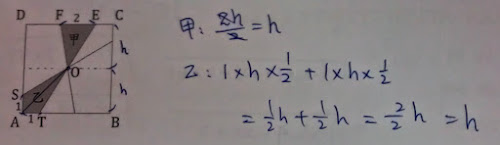 D F 2 E C
甲
h
O
S
乙
1
h
A 1 T B
甲: 2h/2 = h
乙: 1×h×1/2 + 1×h×1/2
= 1/2h + 1/2h = 2/2h = h